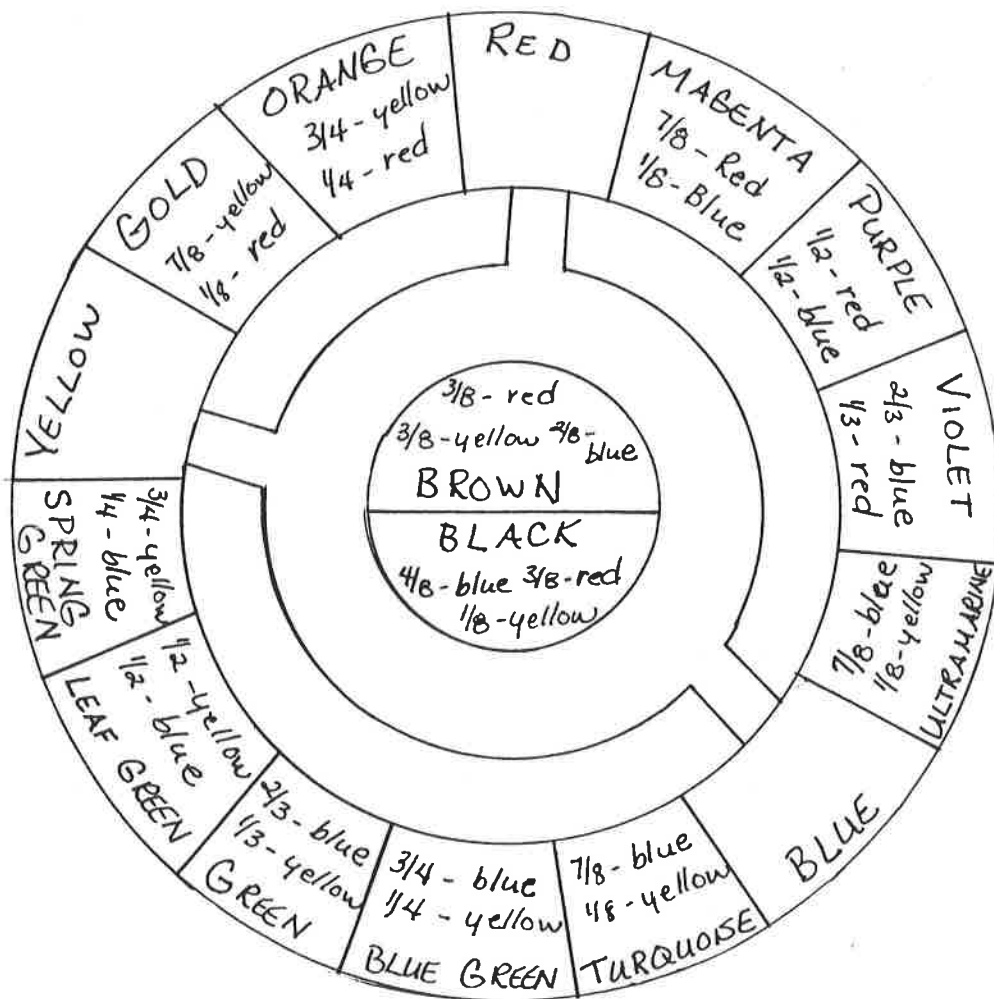 RED
MAGENTA
7/8 - Red
1/8 - Blue
PURPLE
1/2 - red
1/2 - blue
VIOLET
2/3 - blue
1/3 - red
ULTRAMARINE
7/8 - blue
1/8 - yellow
BLUE
7/8 - blue
1/8 - yellow
TURQUOISE
3/4 - blue
1/4 - yellow
BLUE GREEN
2/3 - blue
1/3 - yellow
GREEN
1/2 - yellow
1/2 - blue
LEAF GREEN
3/4 - yellow
1/4 - blue
SPRING
GREEN
YELLOW
GOLD
7/8 - yellow
1/8 - red
ORANGE
3/4 - yellow
1/4 - red
3/8 - red
3/8 - yellow 2/8 - blue
BROWN
BLACK
4/8 - blue 3/8 - red
1/8 - yellow